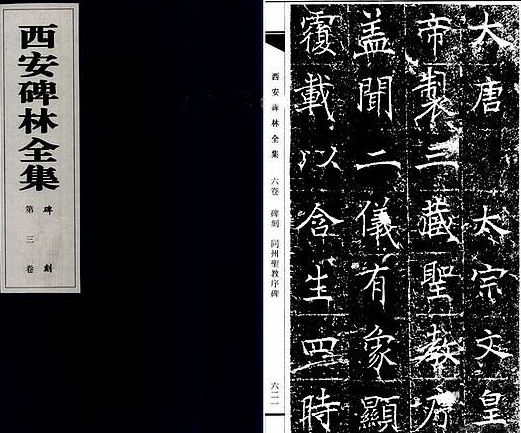 西安碑林全集
碑刻
第三卷
大唐 太宗文皇
帝製三藏聖教序
盖聞二儀有象顯
覆載以含生四時
西安碑林全集 六卷 碑刻 同州聖教序碑 六二一